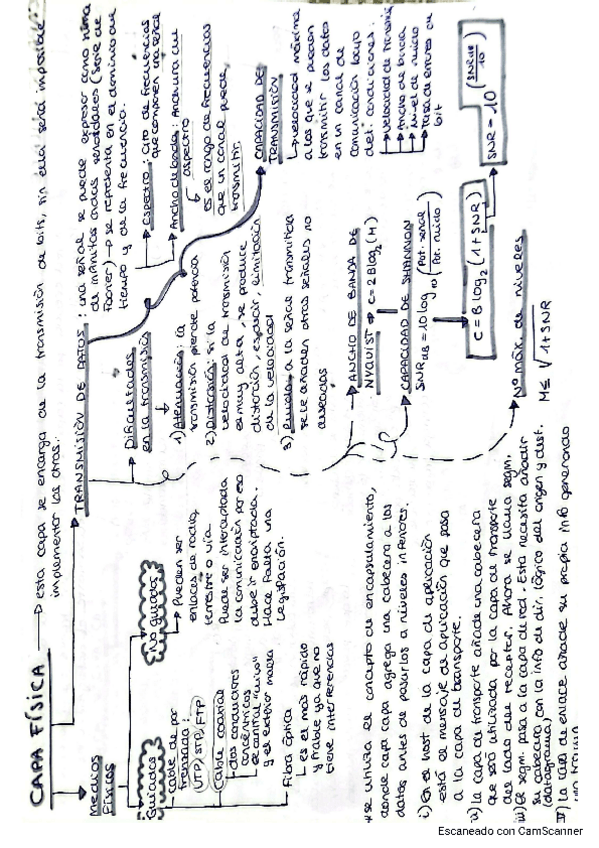 CAPA FÍSICA → esta capa se encarga de la transmisión de bits, sin ella será imposible
implementar las otras.
Medios
Físicos
Guiados
cable de par
trenzado:
UTP/STP/FTP
Cable coaxial
dos conductores
concéntricos
el central "vivo"
y el exterior malla
Fibra óptica
es el más rápido
y fiable ya que no
tiene interferencias
No guiados
Pueden ser
enlaces de radio,
terrestre o vía
Puede ser interceptada
la comunicación por eso
debe ir encriptada.
Hace falta una
legislación.
TRANSMISIÓN DE DATOS: una señal se puede expresar como suma
de infinitas ondas senoidales (Serie de
Fourier) → se representa en el dominio del
tiempo y de la frecuencia.
Dificultades
en la transmisión
1) Atenuación: la
transmisión pierde potencia
2) Distorsión: si la
velocidad de transmisión
es muy alta, se produce
distorsión, es decir, limitación
de la velocidad
3) Ruido: a la señal transmitida
se le añaden otras señales no
deseadas
Espectro: Cjto de frecuencias
que componen una señal
Ancho de banda: Anchura del
espectro
es el rango de frecuencias
que un canal puede
transmitir
CAPACIDAD DE
TRANSMISIÓN
velocidad máxima
a los que se pueden
transmitir los datos
en un canal de
comunicación bajo
det. condiciones:
Velocidad de transmis
Ancho de banda
Nivel de ruido
Tasa de errores en
bit
ANCHO DE BANDA DE
NYQUIST ⇒ C = 2Blog₂(M)
CAPACIDAD DE SHANNON
SNR dB = 10 log₁₀ (Pot. señal / Pot. ruido)
C = B·log₂(1+SNR)
SNR = 10^(SNR dB / 10)
Nº máx. de niveles
M ≤ √1+SNR
*se utiliza el concepto de encapsulamiento,
donde cada capa agrega una cabecera a los
datos antes de pasarlos a niveles inferiores.
i) En el host de la capa de aplicación
está el mensaje de aplicación que pasa
a la capa de transporte.
ii) la capa de transporte añade una cabecera
que será utilizada por la capa de transporte
del lado del receptor. Ahora se llama segm.
iii) El segm. pasa a la capa de red. Esta necesita añadir
su cabecera con la info de dir. lógico del origen y dest.
(datagrama)
IV) la capa de enlace añade su propia info generando
una trama
Escaneado con CamScanner